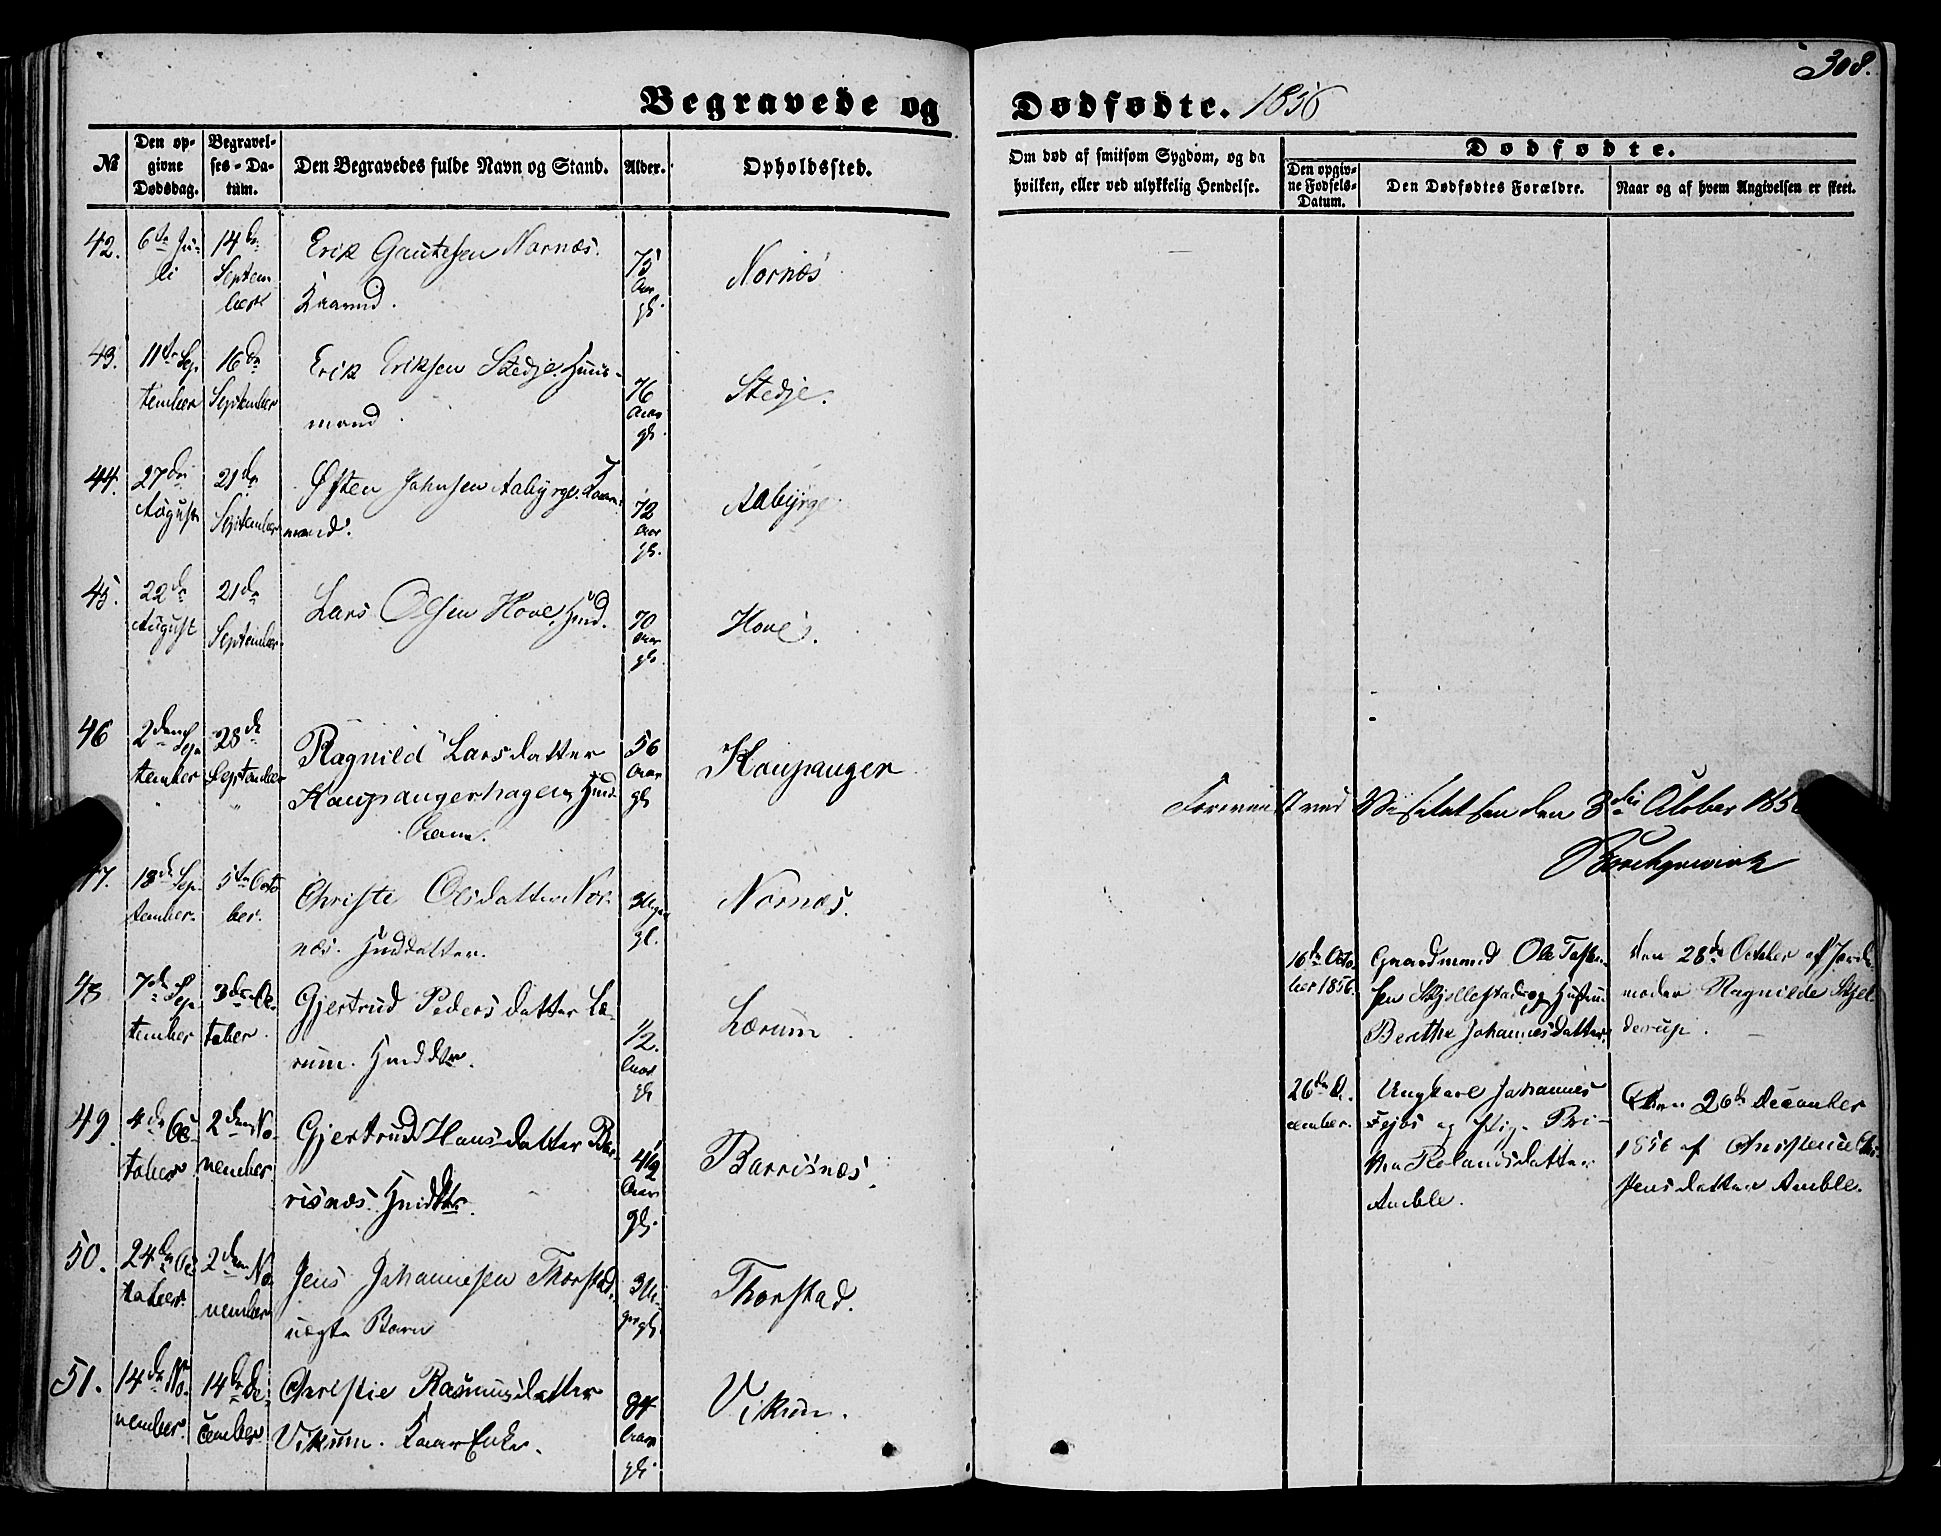 308.
Begravede og Dødfødte. 1856
№
Den opgivne Dødsdag.
Begravelses-Datum.
Den Begravedes fulde Navn og Stand.
Alder.
Opholdssted.
Om død af smitsom Sygdom, og da hvilken, eller ved ulykkelig Hendelse.
Dødfødte.
Den opgivne Fødsels-Datum.
Den Dødfødtes Forældre.
Naar og af hvem Angivelsen er skeet.
42. 6te Juli 14de September Erik Gautesen Nornæs. 75 Aar gl. Nornæs
43. 11te September 16de September Erik Eriksen Stedje. Huusmand 76 Aar gl. Stedje.
44. 27de August 21de September Øften Johnsen Aabyrge. 72 Aar gl. Aabyrge
45. 22de August 21de September Lars Olsen Hove, Hmd. 70 Aar gl. Hove.
46 2den September 28de September Ragnild Larsdatter Kaupangerhagen, Hmd. Kone. 56 Aar gl. Kaupanger
47. 18de September 5te October Christi Olsdatter Nornæs. Hmddatter. gl. Nornæs.
48 7de September 3die October Gjertrud Pedersdatter Lærum. Hmddtr. 1/2 Aar gl. Lærum
49. 4de October 2den November Gjertrud Hansdatter Barisnæs. Hmddtr. Aar gl. Barrisnæs.
50. 24de October 2den November Jens Johannesen Thorstad, uægte Barn 3 Uger gl. Thorstad.
51. 14de November 14de December Christie Rasmusdatter Vikum. Enke. 84 Aar gl. Vikum.
ved Visitatsen den 3die October 1856
16de October 1856. Gaardmand Ole Skjellestad og Hustru Berithe Johannesdatter. den 28de October af Jordemoder Ragnilde Skjelderup.
26de December. Ungkarl Johannes og Pige Rolandsdatter Amble. Den 26de December 1856 af Amble.